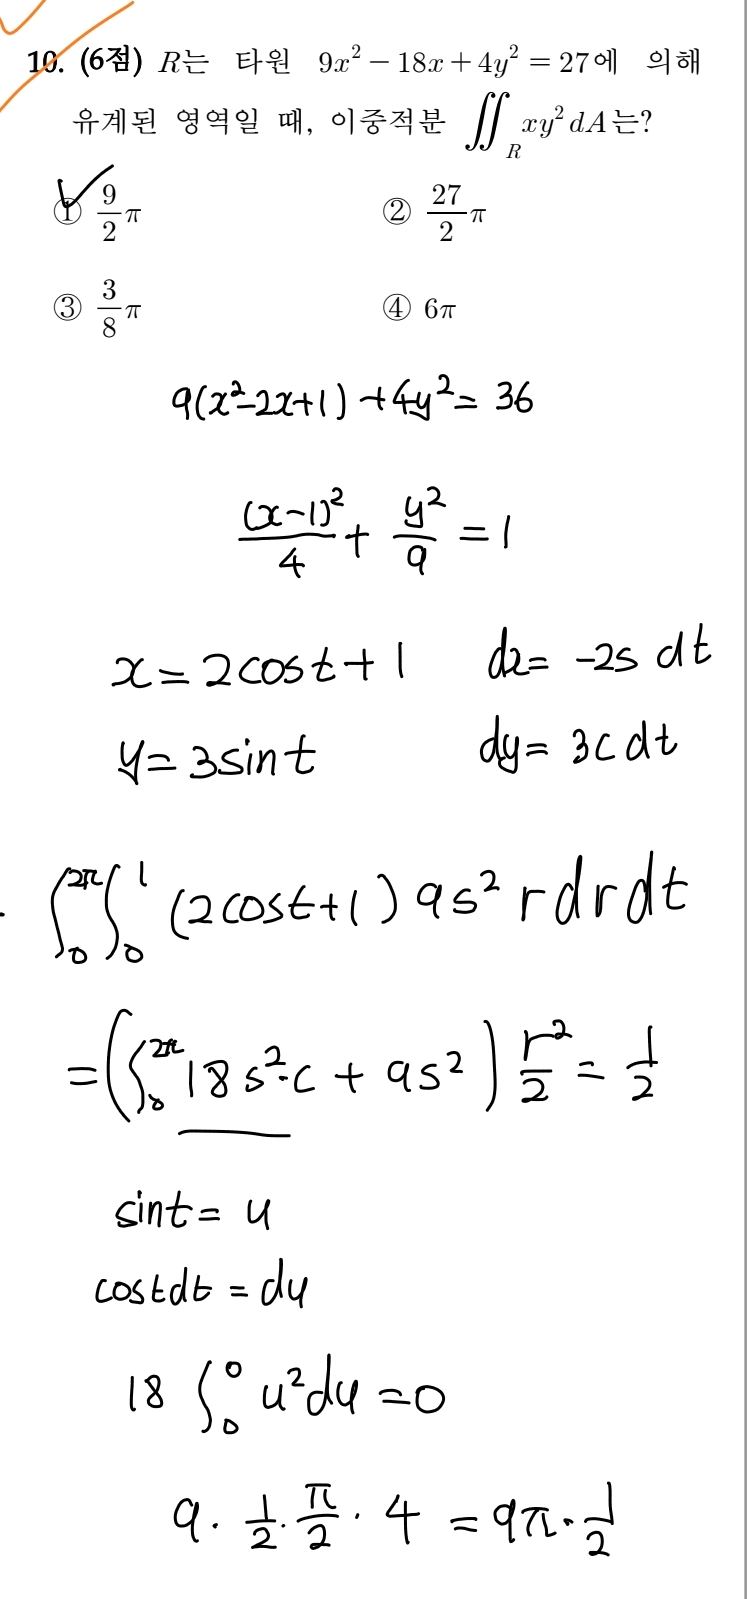 10. (6점) R는 타원 9x² − 18x + 4y² = 27에 의해
유계된 영역일 때, 이중적분 ∬_R xy² dA는?
① 9/2 π ② 27/2 π
③ 3/8 π ④ 6π
9(x²-2x+1) + 4y² = 36
(x-1)²/4 + y²/9 = 1
x = 2cost + 1 dx = -2s dt
y = 3sint dy = 3c dt
∫₀^2π ∫₀^1 (2cost+1) 9s² r dr dt
= (∫₀^2π 18s²·c + 9s²) r²/2 = 1/2
sint = u
costdt = du
18 ∫₀^0 u²du = 0
9 · 1/2 · π/2 · 4 = 9π · 1/2